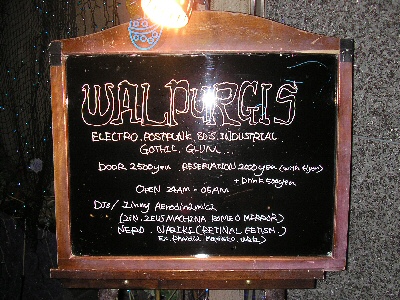 WALPURGIS
ELECTRO. POSTPUNK. 80'S. INDUSTRIAL
GOTHIC. GLUM...
DOOR 2500yen RESERVATION 2000yen (with flyer)
+ Drink 500yen
OPEN 24AM - 05AM
DJs / Jimmy Aerodinamica
(DiN. ZEUS MACHINA ROMEO MERROR)
NERO. NARIKI (RETINAL FETISH.)
Ex.